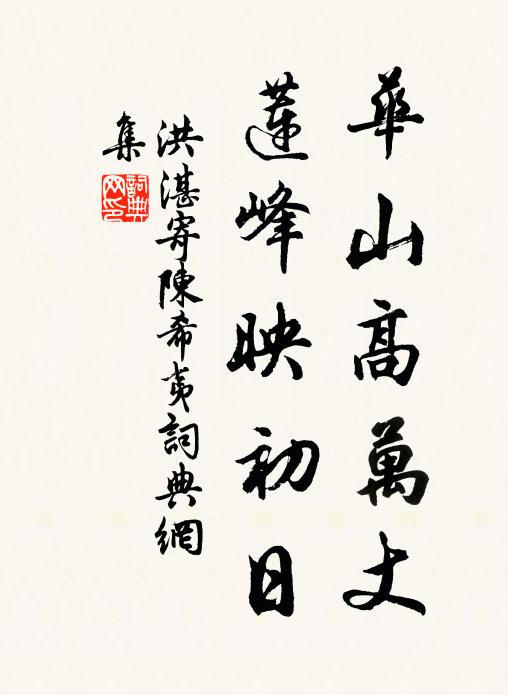 華山高萬丈
蓮峰映初日
洪湛寄陳希夷詞典網
集
詞典
网印